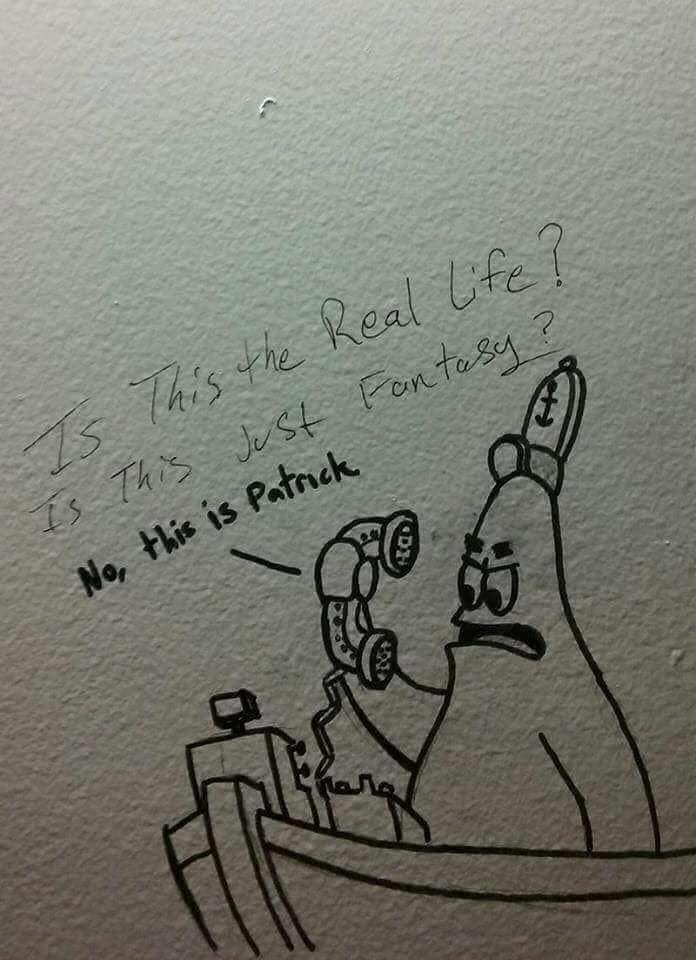 Is This the Real Life?
Is This Just Fantasy?
No, this is Patrick